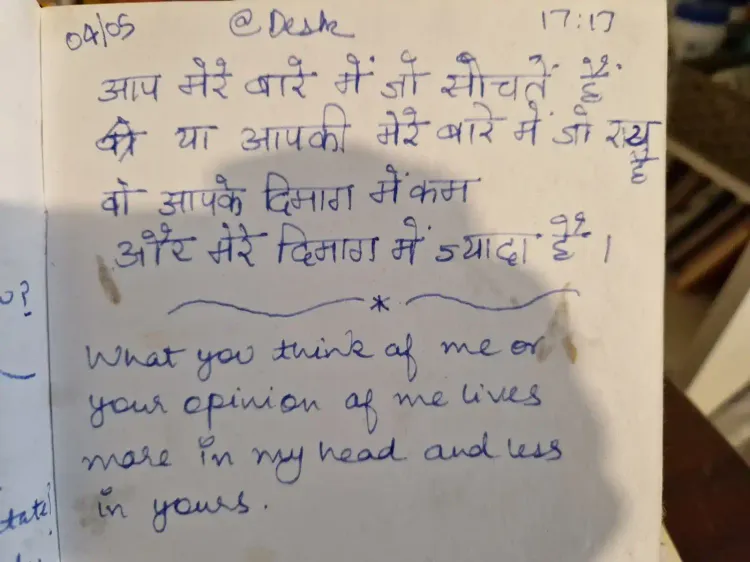 04/05 @Desk 17:17
आप मेरे बारे में जो सोचते हैं
या आपकी मेरे बारे में जो राय है
वो आपके दिमाग में कम
और मेरे दिमाग में ज्यादा है ।
*
What you think of me or
your opinion of me lives
more in my head and less
in yours.